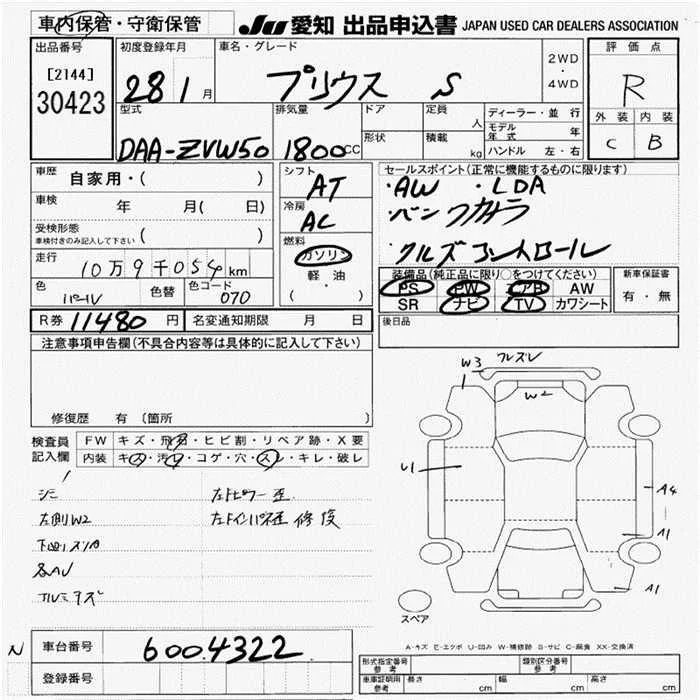 車内保管・守衛保管
JU 愛知 出品申込書 JAPAN USED CAR DEALERS ASSOCIATION
出品番号
[2144]
30423
初度登録年月
28 1 月
車名・グレード
プリウス S
2WD
・
4WD
評価点
R
外装 内装
C B
型式
DAA-ZVW50
排気量
1800 CC
ドア
形状
定員
人
積載
kg
ディーラー・並行
モデル年式 年
ハンドル 左・右
車歴
自家用・( )
車検
年 月( 日)
受検形態
車検付きのみ記入して下さい ( )
走行
10万9千054 km
色
パール
色替
色コード
070
シフト
AT
冷房
AC
燃料
ガソリン
軽油
( )
セールスポイント(正常に機能するものに限ります)
・AW ・LDA
・バックカメラ
・クルズコントロール
装備品(純正品に限り○をつけてください)
PS PW エアB AW
SR ナビ TV カワシート
新車保証書
有・無
R券 11480 円
名変通知期限 月 日
後日品
注意事項申告欄(不具合内容等は具体的に記入して下さい)
修復歴 有 〔箇所
検査員記入欄
FW キズ・飛石・ヒビ割・リペア跡・X要
内装 キズ・汚レ・コゲ・穴・スレ・キレ・破レ
シミ
左側W2
下廻りスリ
各AU
アルミキズ
左トインパネ歪 修復
W3
W2
U1
A4
A1
A1
スペア
A-キズ E-エクボ U-凹み W-補修跡 S-サビ C-腐食 XX-交換済
N
車台番号
6004322
登録番号
形式指定番号
参考
類別区分番号
参考
車庫証明用
参考
長さ cm 幅 cm 高さ cm